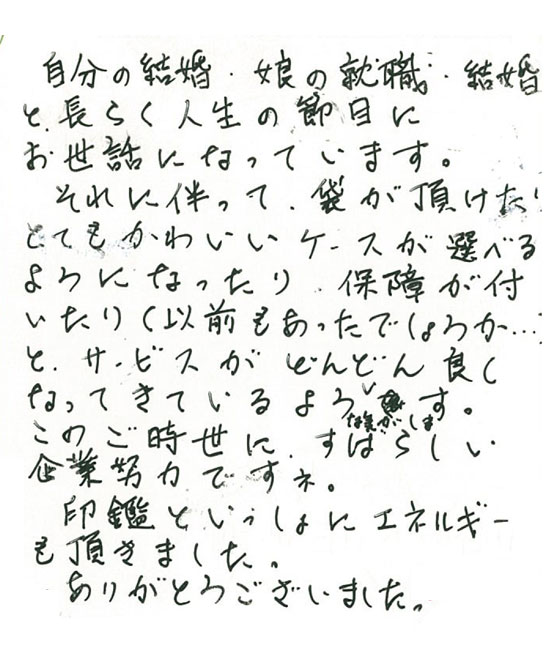 自分の結婚・娘の就職・結婚
と、長らく人生の節目に
お世話になっています。
それに伴って、袋が頂けたり
とてもかわいいケースが選べる
ようになったり、保障が付
いたり(以前もあったでしょうか…)
と、サービスがどんどん良く
なってきているような気がします。
このご時世に、すばらしい
企業努力ですネ。
印鑑といっしょにエネルギー
も頂きました。
ありがとうございました。